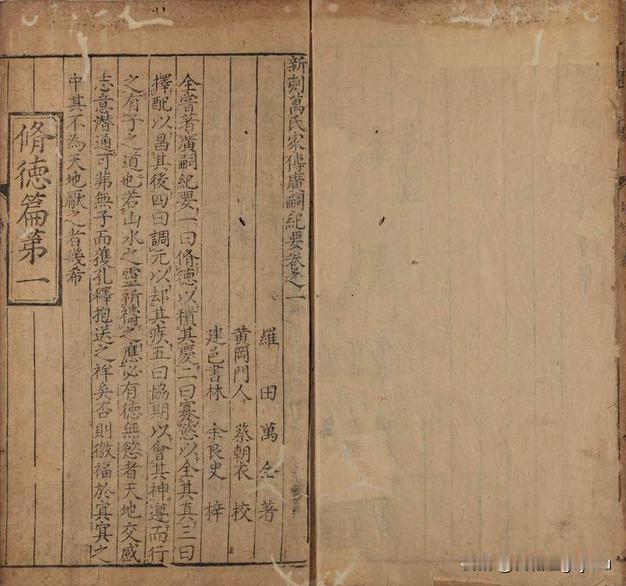 新刻萬氏家傳廣嗣紀要卷之一
羅田萬全著
黃岡門人蔡朝衣校
建邑書林余良史梓
全嘗著廣嗣紀要一曰脩德以積其慶二曰寡慾以全其真三曰
擇配以昌其後四曰調元以却其疾五曰協期以會其神遵而行
之有子之道也若山水之靈祈禱之應必有德無慾者天地交感
志意潛通可弗無子而獲孔釋抱送之祥矣否則徼福於冥冥之
中其不為天地厭之者幾希
脩德篇第一